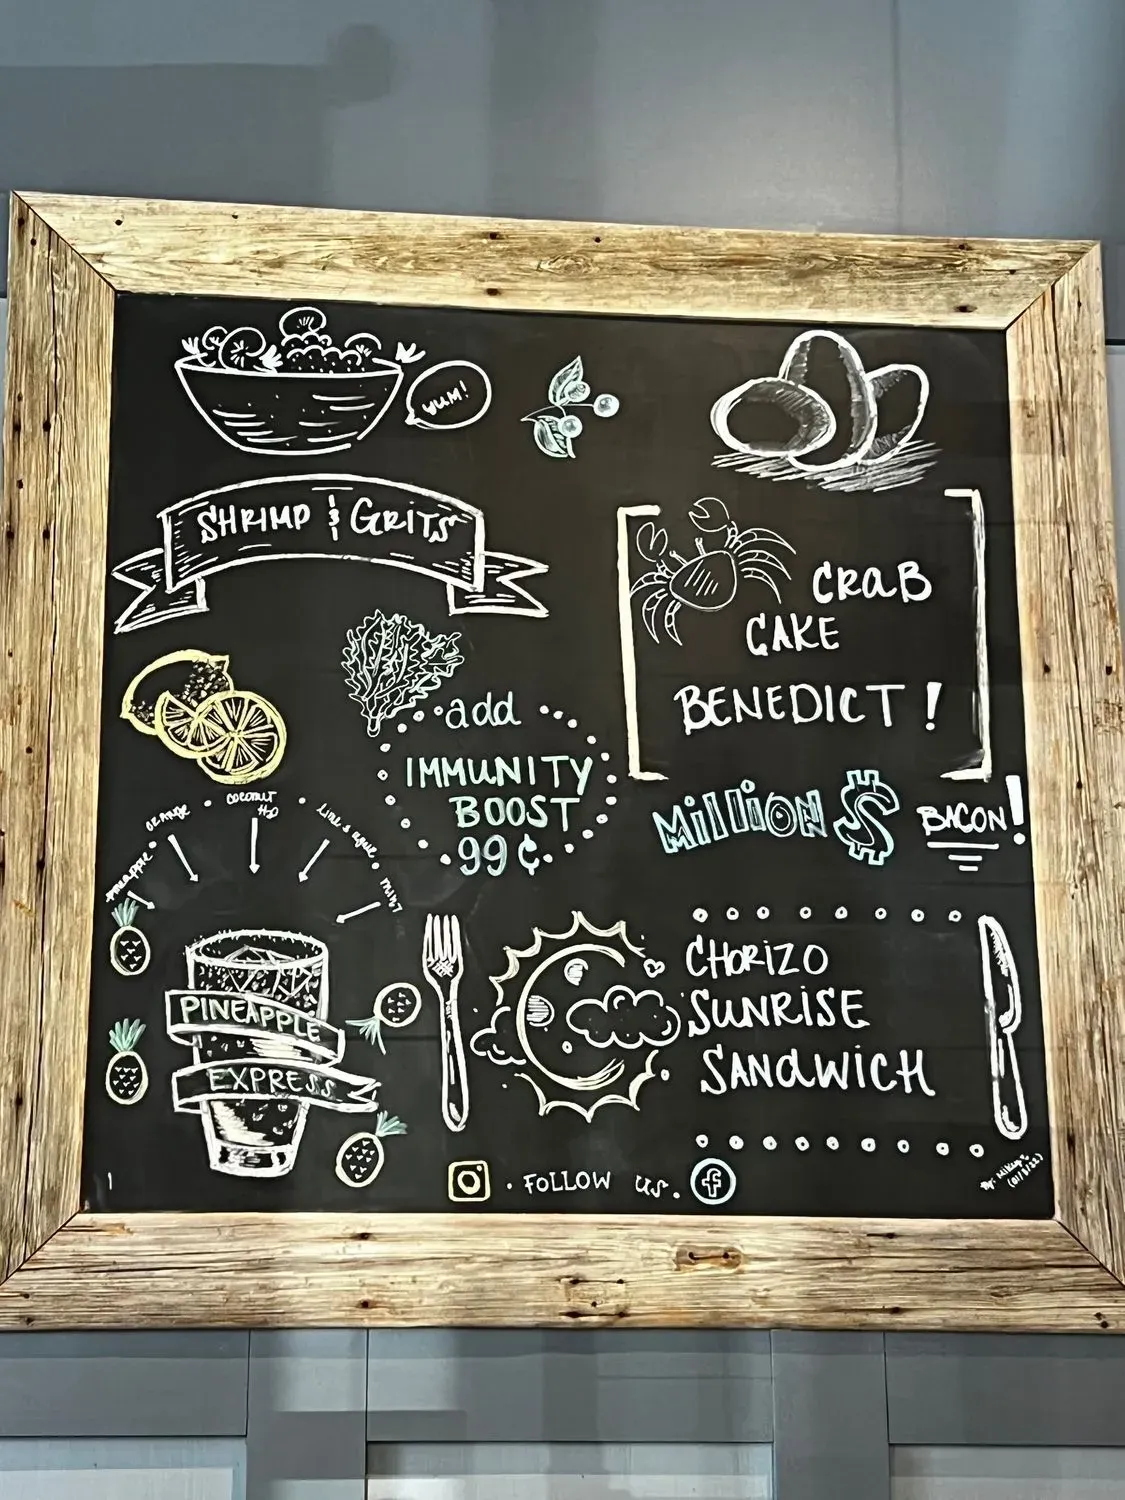 YUM!
SHRIMP & GRITS
CRAB
CAKE
BENEDICT!
add
IMMUNITY
BOOST
99¢
MilliON $ BACON!
pineapple • orange • coconut H2O • lime & agave • mint
PINEAPPLE
EXPRESS
CHORIZO
SUNRISE
SANDWICH
• FOLLOW us.
By: